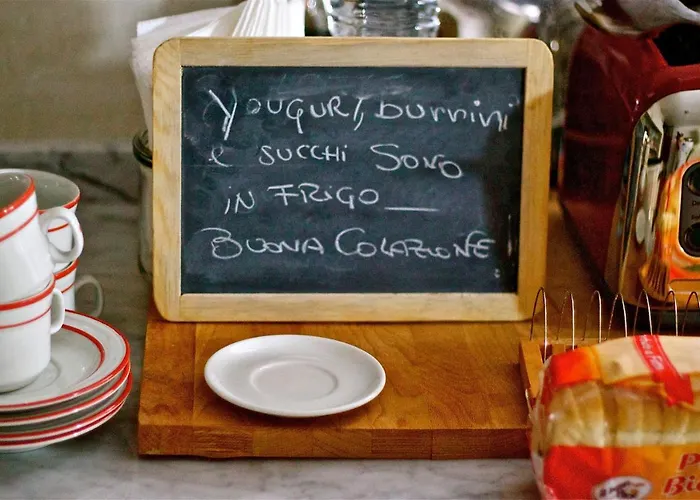 YOUGURT, BURRINI
e SUCCHI SONO
IN FRIGO__
BUONA COLAZIONE